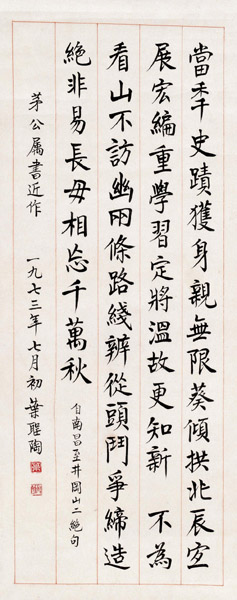 當秊史蹟獲身親無限葵傾拱北辰室
展宏編重學習定將溫故更知新 不為
看山不訪幽兩條路綫辨從頭鬥爭締造
絕非易長毋相忘千萬秋 自南昌至井岡山二絕句
茅公属書近作 一九七三年七月初 葉聖陶